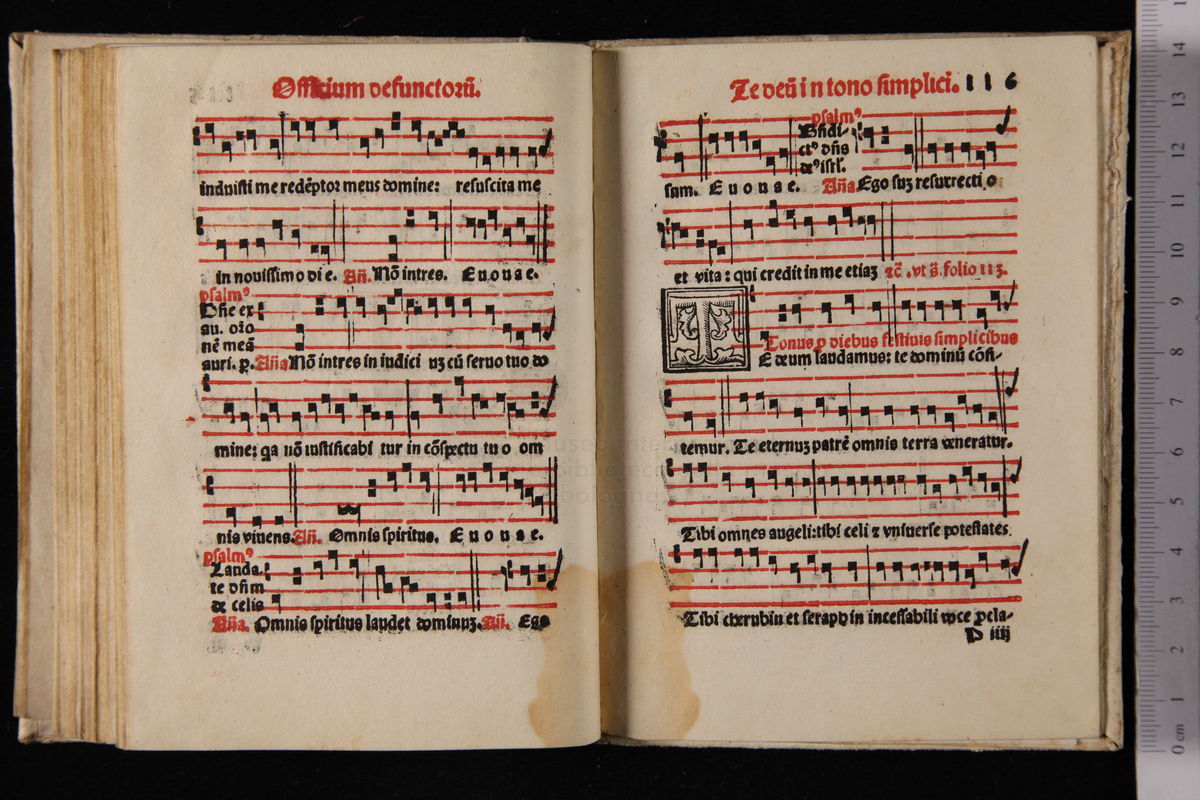 Officium defunctorū.
induisti me redēptor meus domine: resuscita me
in nouissimo die. Añ. Nō intres. Euouae.
psalmꝰ
Dñe ex
au. orō
nē meā
auri. ꝑ. Aña Nō intres in iudici uꝫ cū seruo tuo do
mine: qa nō iustificabi tur in cōspectu tuo om
nis viuens. Añ. Omnis spiritus. Euouae.
psalmꝰ
Lauda
te dñm
de celis
Aña. Omnis spiritus laudet dominuꝫ. Añ. Ego
Te deū in tono simplici. 116
psalmꝰ
Bñdi-
ctꝰ dñs
deꝰ isrl.
sum. Euouae. Aña Ego suꝫ resurrectio
et vita: qui credit in me etiaꝫ ⁊c̄. vt s̄. folio 113.
Tonus ꝓ diebus festiuis simplicibus
T E deum laudamus: te dominū cōfi-
temur. Te eternuꝫ patrē omnis terra veneratur.
Tibi omnes angeli: tibi celi ⁊ vniuerse potestates
Tibi cherubin et seraphin incessabili voce ꝓcla-
P iiij
0 cm 1 2 3 4 5 6 7 8 9 10 11 12 13 14